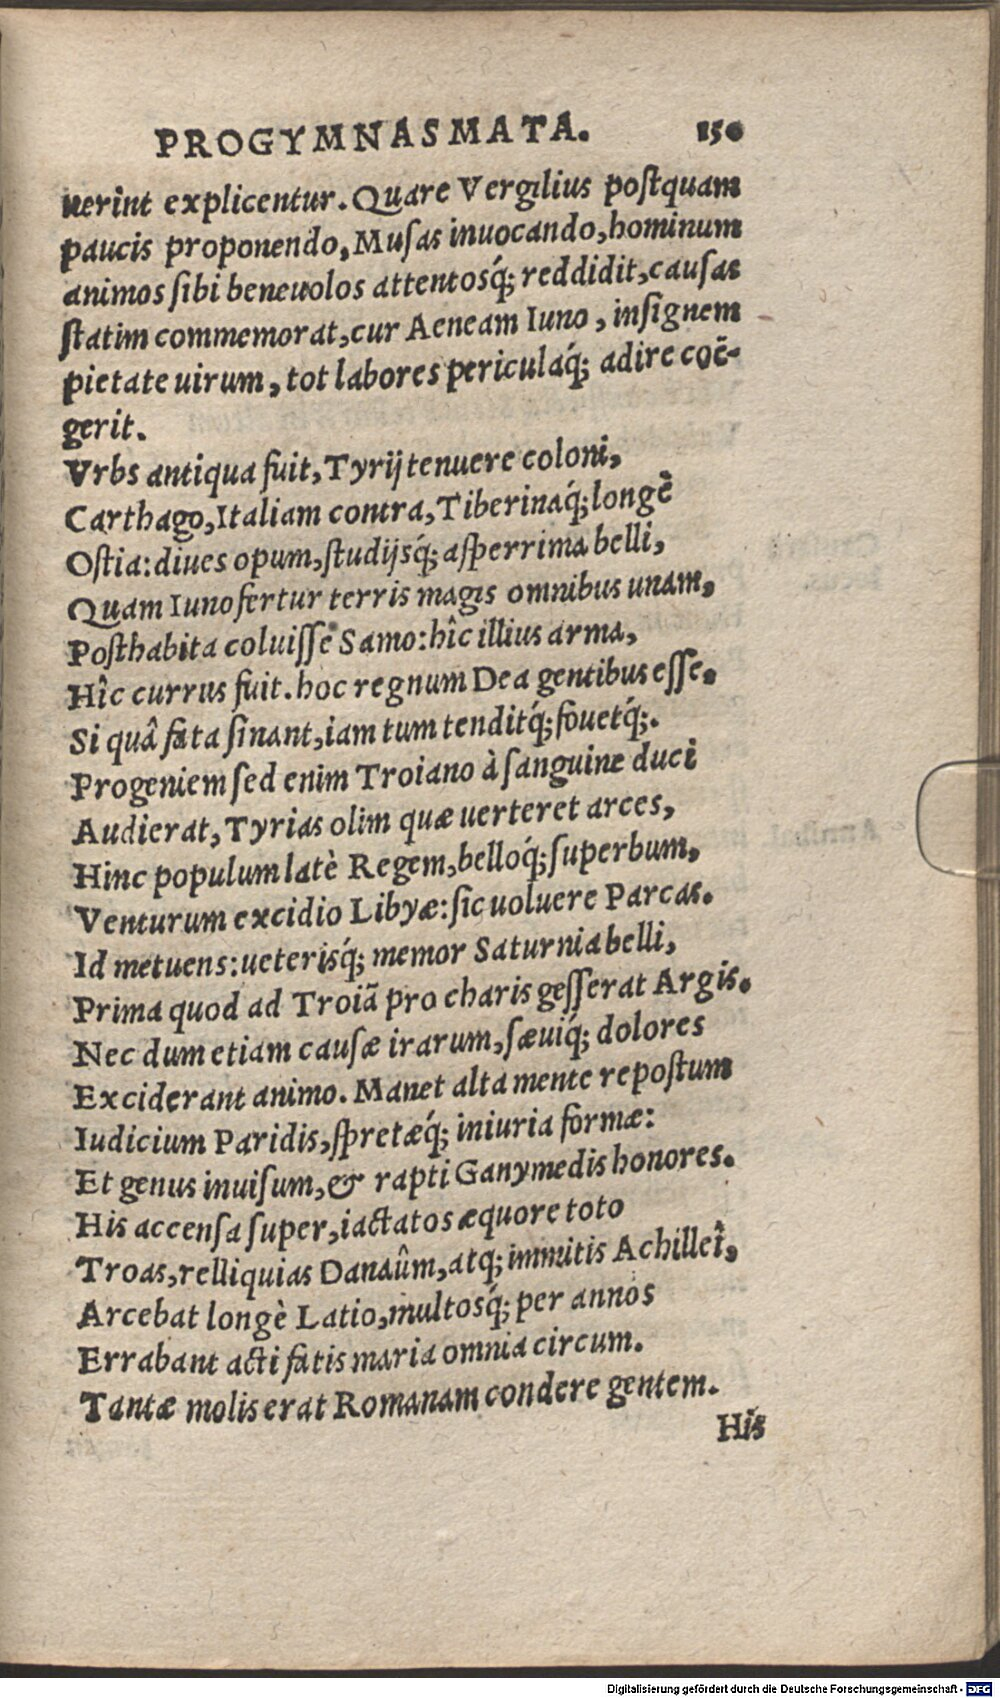 PROGYMNASMATA. 150
uerint explicentur. Quare Vergilius postquam
paucis proponendo, Musas inuocando, hominum
animos sibi beneuolos attentosq́; reddidit, causas
statim commemorat, cur Aeneam Iuno, insignem
pietate uirum, tot labores periculaq́; adire coë-
gerit.
Vrbs antiqua fuit, Tyrij tenuere coloni,
Carthago, Italiam contra, Tiberinaq́; longè
Ostia: diues opum, studijsq́; asperrima belli,
Quam Iuno fertur terris magis omnibus unam,
Posthabita coluisse Samo: hîc illius arma,
Hîc currus fuit. hoc regnum Dea gentibus esse.
Si quâ fata sinant, iam tum tenditq́; fouetq́;.
Progeniem sed enim Troiano à sanguine duci
Audierat, Tyrias olim quæ uerteret arces,
Hinc populum latè Regem, belloq́; superbum,
Venturum excidio Libyæ: sic uoluere Parcas.
Id metuens: ueterisq́; memor Saturnia belli,
Prima quod ad Troiã pro charis gesserat Argis.
Nec dum etiam causæ irarum, sæuiq́; dolores
Exciderant animo. Manet alta mente repostum
Iudicium Paridis, spretæq́; iniuria formæ:
Et genus inuisum, & rapti Ganymedis honores.
His accensa super, iactatos æquore toto
Troas, relliquias Danaûm, atq; immitis Achilleî,
Arcebat longè Latio, multosq́; per annos
Errabant acti fatis maria omnia circum.
Tantæ molis erat Romanam condere gentem.
His
Digitalisierung gefördert durch die Deutsche Forschungsgemeinschaft - DFG